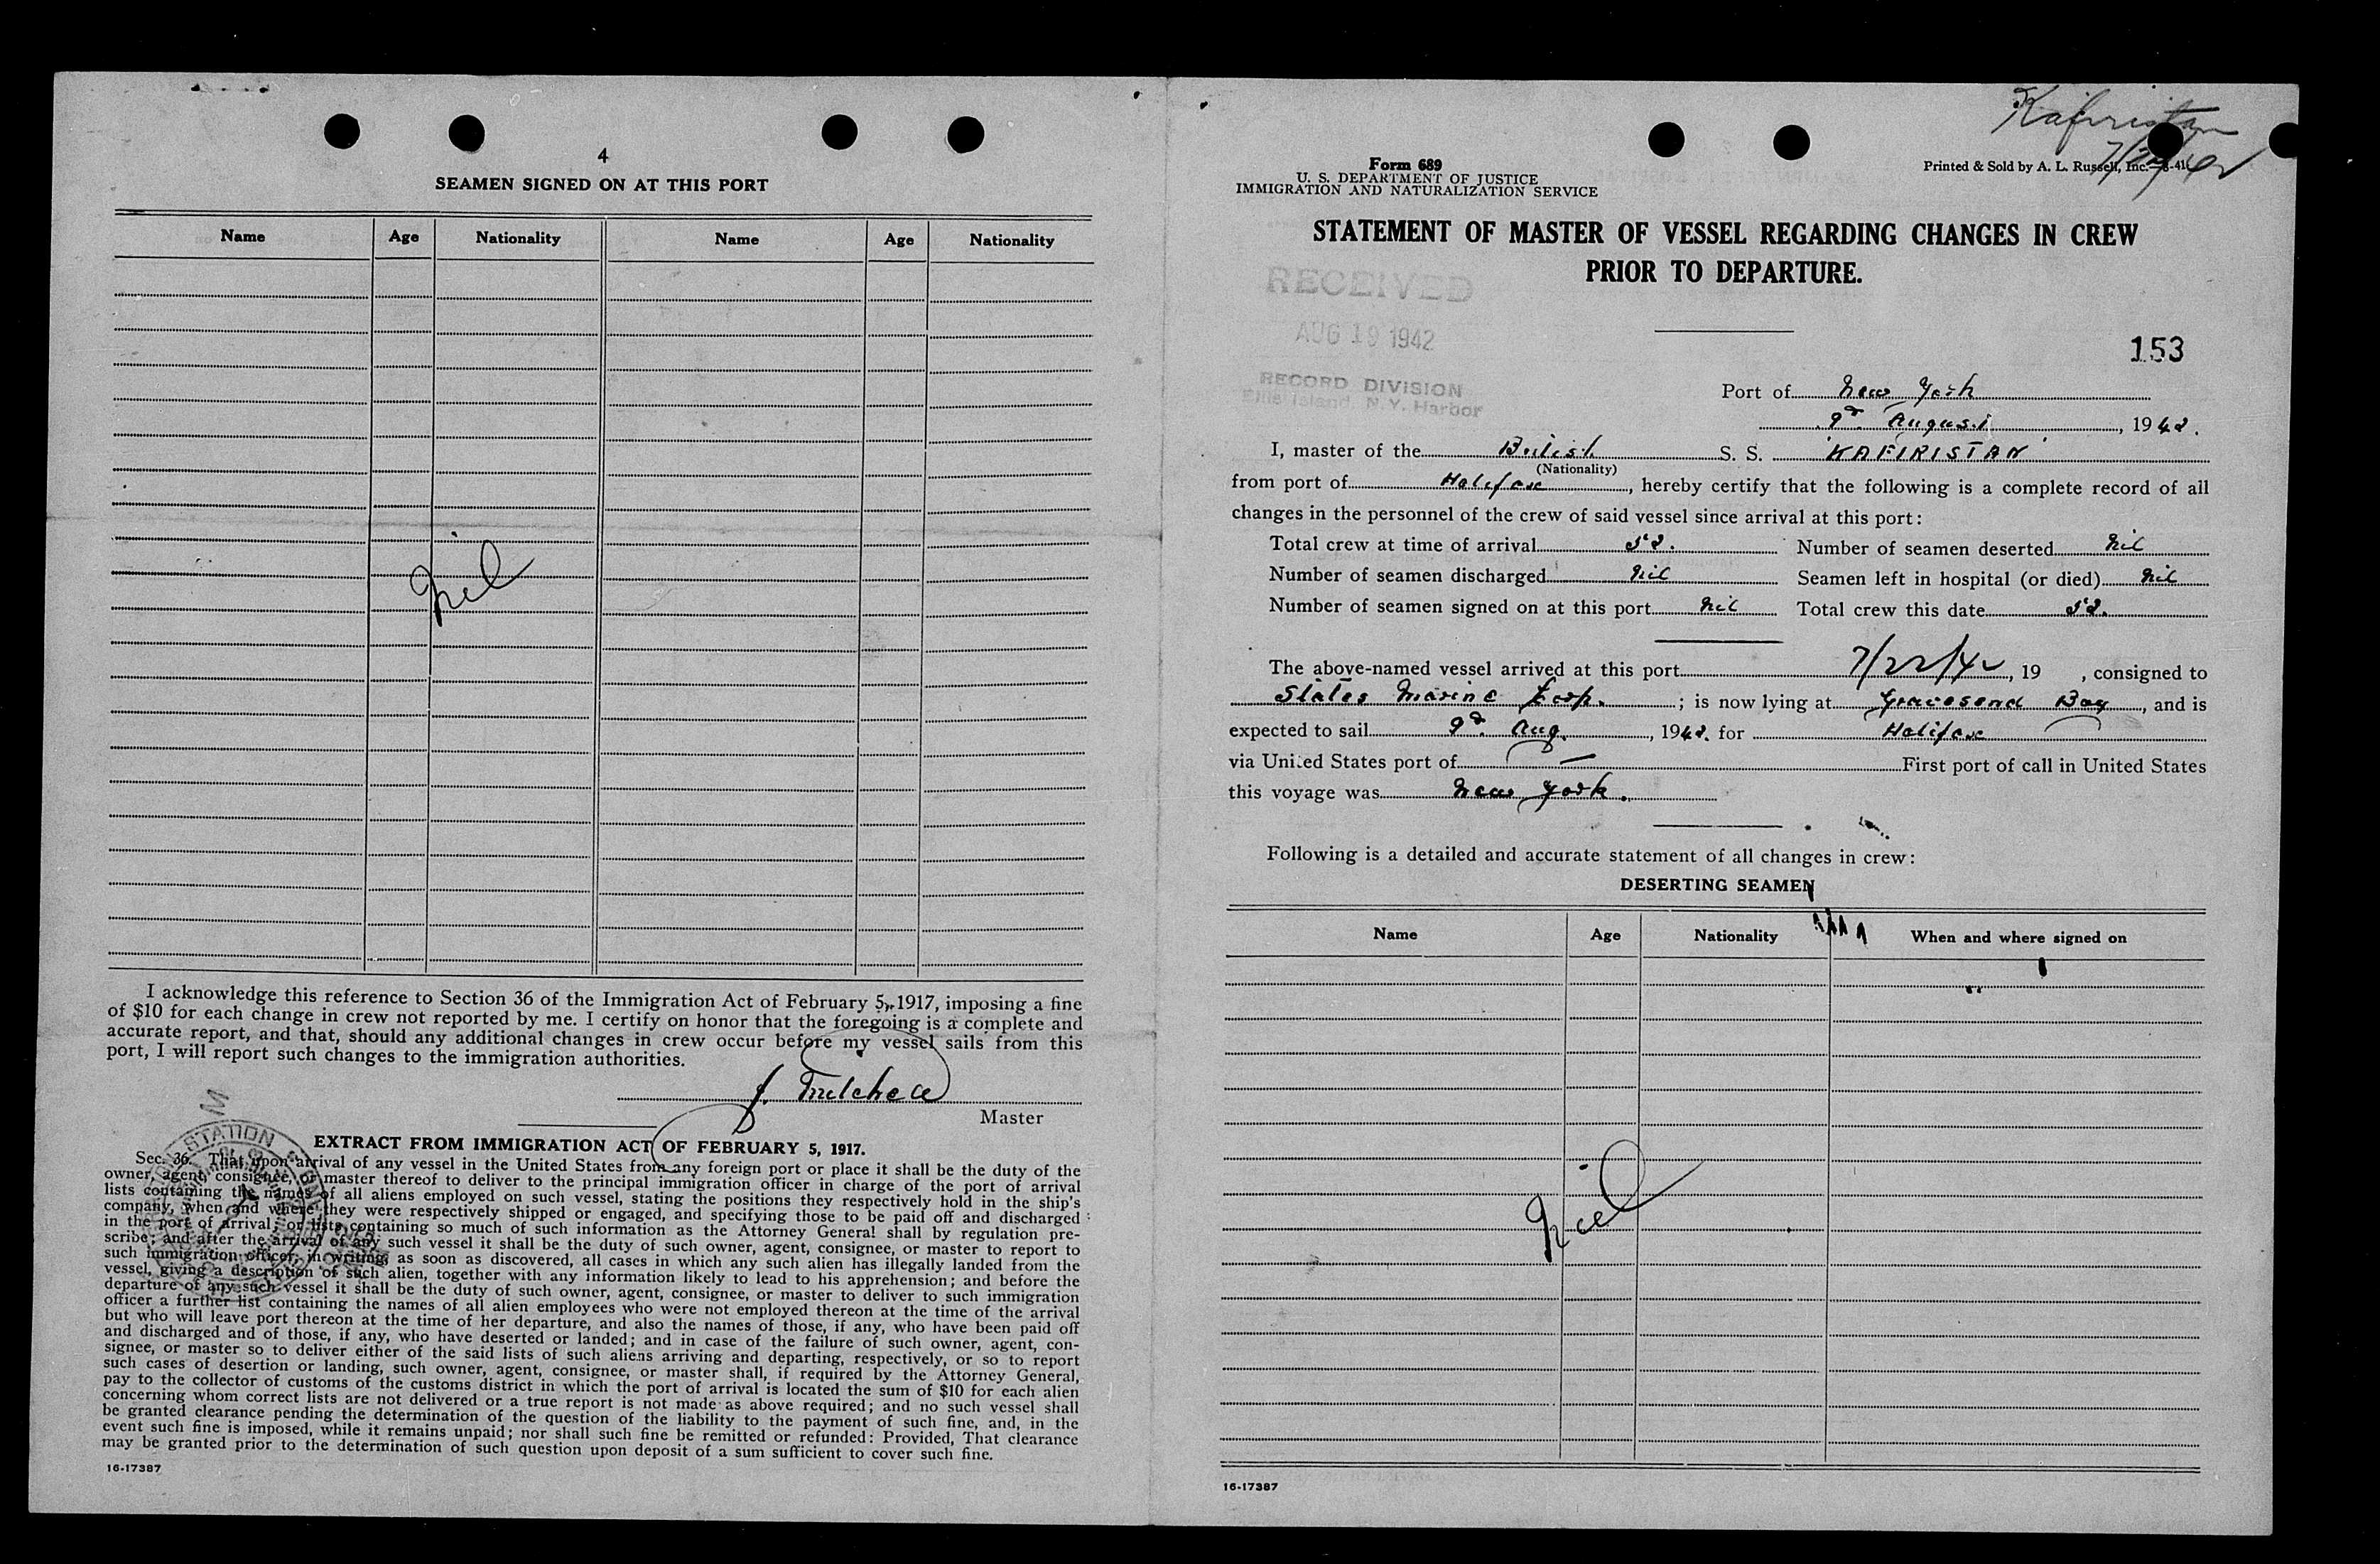 4
SEAMEN SIGNED ON AT THIS PORT
Name Age Nationality Name Age Nationality
Nil
I acknowledge this reference to Section 36 of the Immigration Act of February 5, 1917, imposing a fine
of $10 for each change in crew not reported by me. I certify on honor that the foregoing is a complete and
accurate report, and that, should any additional changes in crew occur before my vessel sails from this
port, I will report such changes to the immigration authorities.
J. Mitchell
Master
EXTRACT FROM IMMIGRATION ACT OF FEBRUARY 5, 1917.
STATION
Sec. 36. That upon arrival of any vessel in the United States from any foreign port or place it shall be the duty of the
owner, agent, consignee, or master thereof to deliver to the principal immigration officer in charge of the port of arrival
lists containing the names of all aliens employed on such vessel, stating the positions they respectively hold in the ship's
company, when and where they were respectively shipped or engaged, and specifying those to be paid off and discharged
in the port of arrival; or lists containing so much of such information as the Attorney General shall by regulation pre-
scribe; and after the arrival of any such vessel it shall be the duty of such owner, agent, consignee, or master to report to
such immigration officer, in writing, as soon as discovered, all cases in which any such alien has illegally landed from the
vessel, giving a description of such alien, together with any information likely to lead to his apprehension; and before the
departure of any such vessel it shall be the duty of such owner, agent, consignee, or master to deliver to such immigration
officer a further list containing the names of all alien employees who were not employed thereon at the time of the arrival
but who will leave port thereon at the time of her departure, and also the names of those, if any, who have been paid off
and discharged and of those, if any, who have deserted or landed; and in case of the failure of such owner, agent, con-
signee, or master so to deliver either of the said lists of such aliens arriving and departing, respectively, or so to report
such cases of desertion or landing, such owner, agent, consignee, or master shall, if required by the Attorney General,
pay to the collector of customs of the customs district in which the port of arrival is located the sum of $10 for each alien
concerning whom correct lists are not delivered or a true report is not made as above required; and no such vessel shall
be granted clearance pending the determination of the question of the liability to the payment of such fine, and, in the
event such fine is imposed, while it remains unpaid; nor shall such fine be remitted or refunded: Provided, That clearance
may be granted prior to the determination of such question upon deposit of a sum sufficient to cover such fine.
16-17387
Kafiristan
Form 689
U. S. DEPARTMENT OF JUSTICE
IMMIGRATION AND NATURALIZATION SERVICE
Printed & Sold by A. L. Russell, Inc.
STATEMENT OF MASTER OF VESSEL REGARDING CHANGES IN CREW
PRIOR TO DEPARTURE.
RECEIVED
AUG 19 1942
RECORD DIVISION
Ellis Island N.Y. Harbor
153
Port of New York
9d August, 1942.
I, master of the British S. S. 'KAFIRISTAN'
(Nationality)
from port of Halifax, hereby certify that the following is a complete record of all
changes in the personnel of the crew of said vessel since arrival at this port:
Total crew at time of arrival 52. Number of seamen deserted Nil
Number of seamen discharged Nil Seamen left in hospital (or died) Nil
Number of seamen signed on at this port Nil Total crew this date 52.
The above-named vessel arrived at this port 7/22/42, 19 , consigned to
States Marine Corp. ; is now lying at Gravesend Bay, and is
expected to sail 9d. Aug., 1942. for Halifax
via United States port of — First port of call in United States
this voyage was New York.
Following is a detailed and accurate statement of all changes in crew:
DESERTING SEAMEN
Name Age Nationality When and where signed on
Nil
16-17387